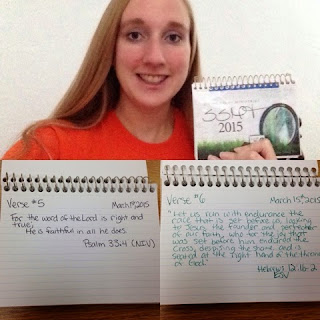 SSMT
2015
Verse #5
March 1st, 2015
For the word of the Lord is right and
true;
He is faithful in all he does.
Psalm 33:4 (NIV)
Verse #6
March 15th, 2015
"Let us run with endurance the
race that is set before us, looking
to Jesus, the founder and perfecter
of our faith, who for the joy that
was set before him endured the
cross, despising the shame, and is
seated at the right hand of the throne
of God."
Hebrews 12:1b-2
ESV